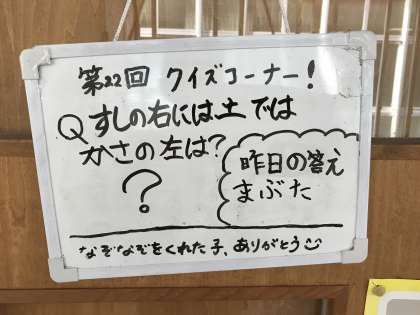 第22回 クイズコーナー!
Q すしの右には土では
かさの左は?
?
昨日の答え
まぶた
なぞなぞをくれた子、ありがとう